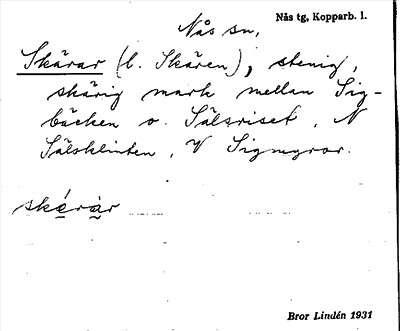 Nås sn,
Nås tg, Kopparb. l.
Skärar (b. Skären), stenig,
skärig mark mellan Sig-
bäcken o. Sälsriset, N
Sälsklinten, V Sigmyror.
skǟràr
Bror Lindén 1931